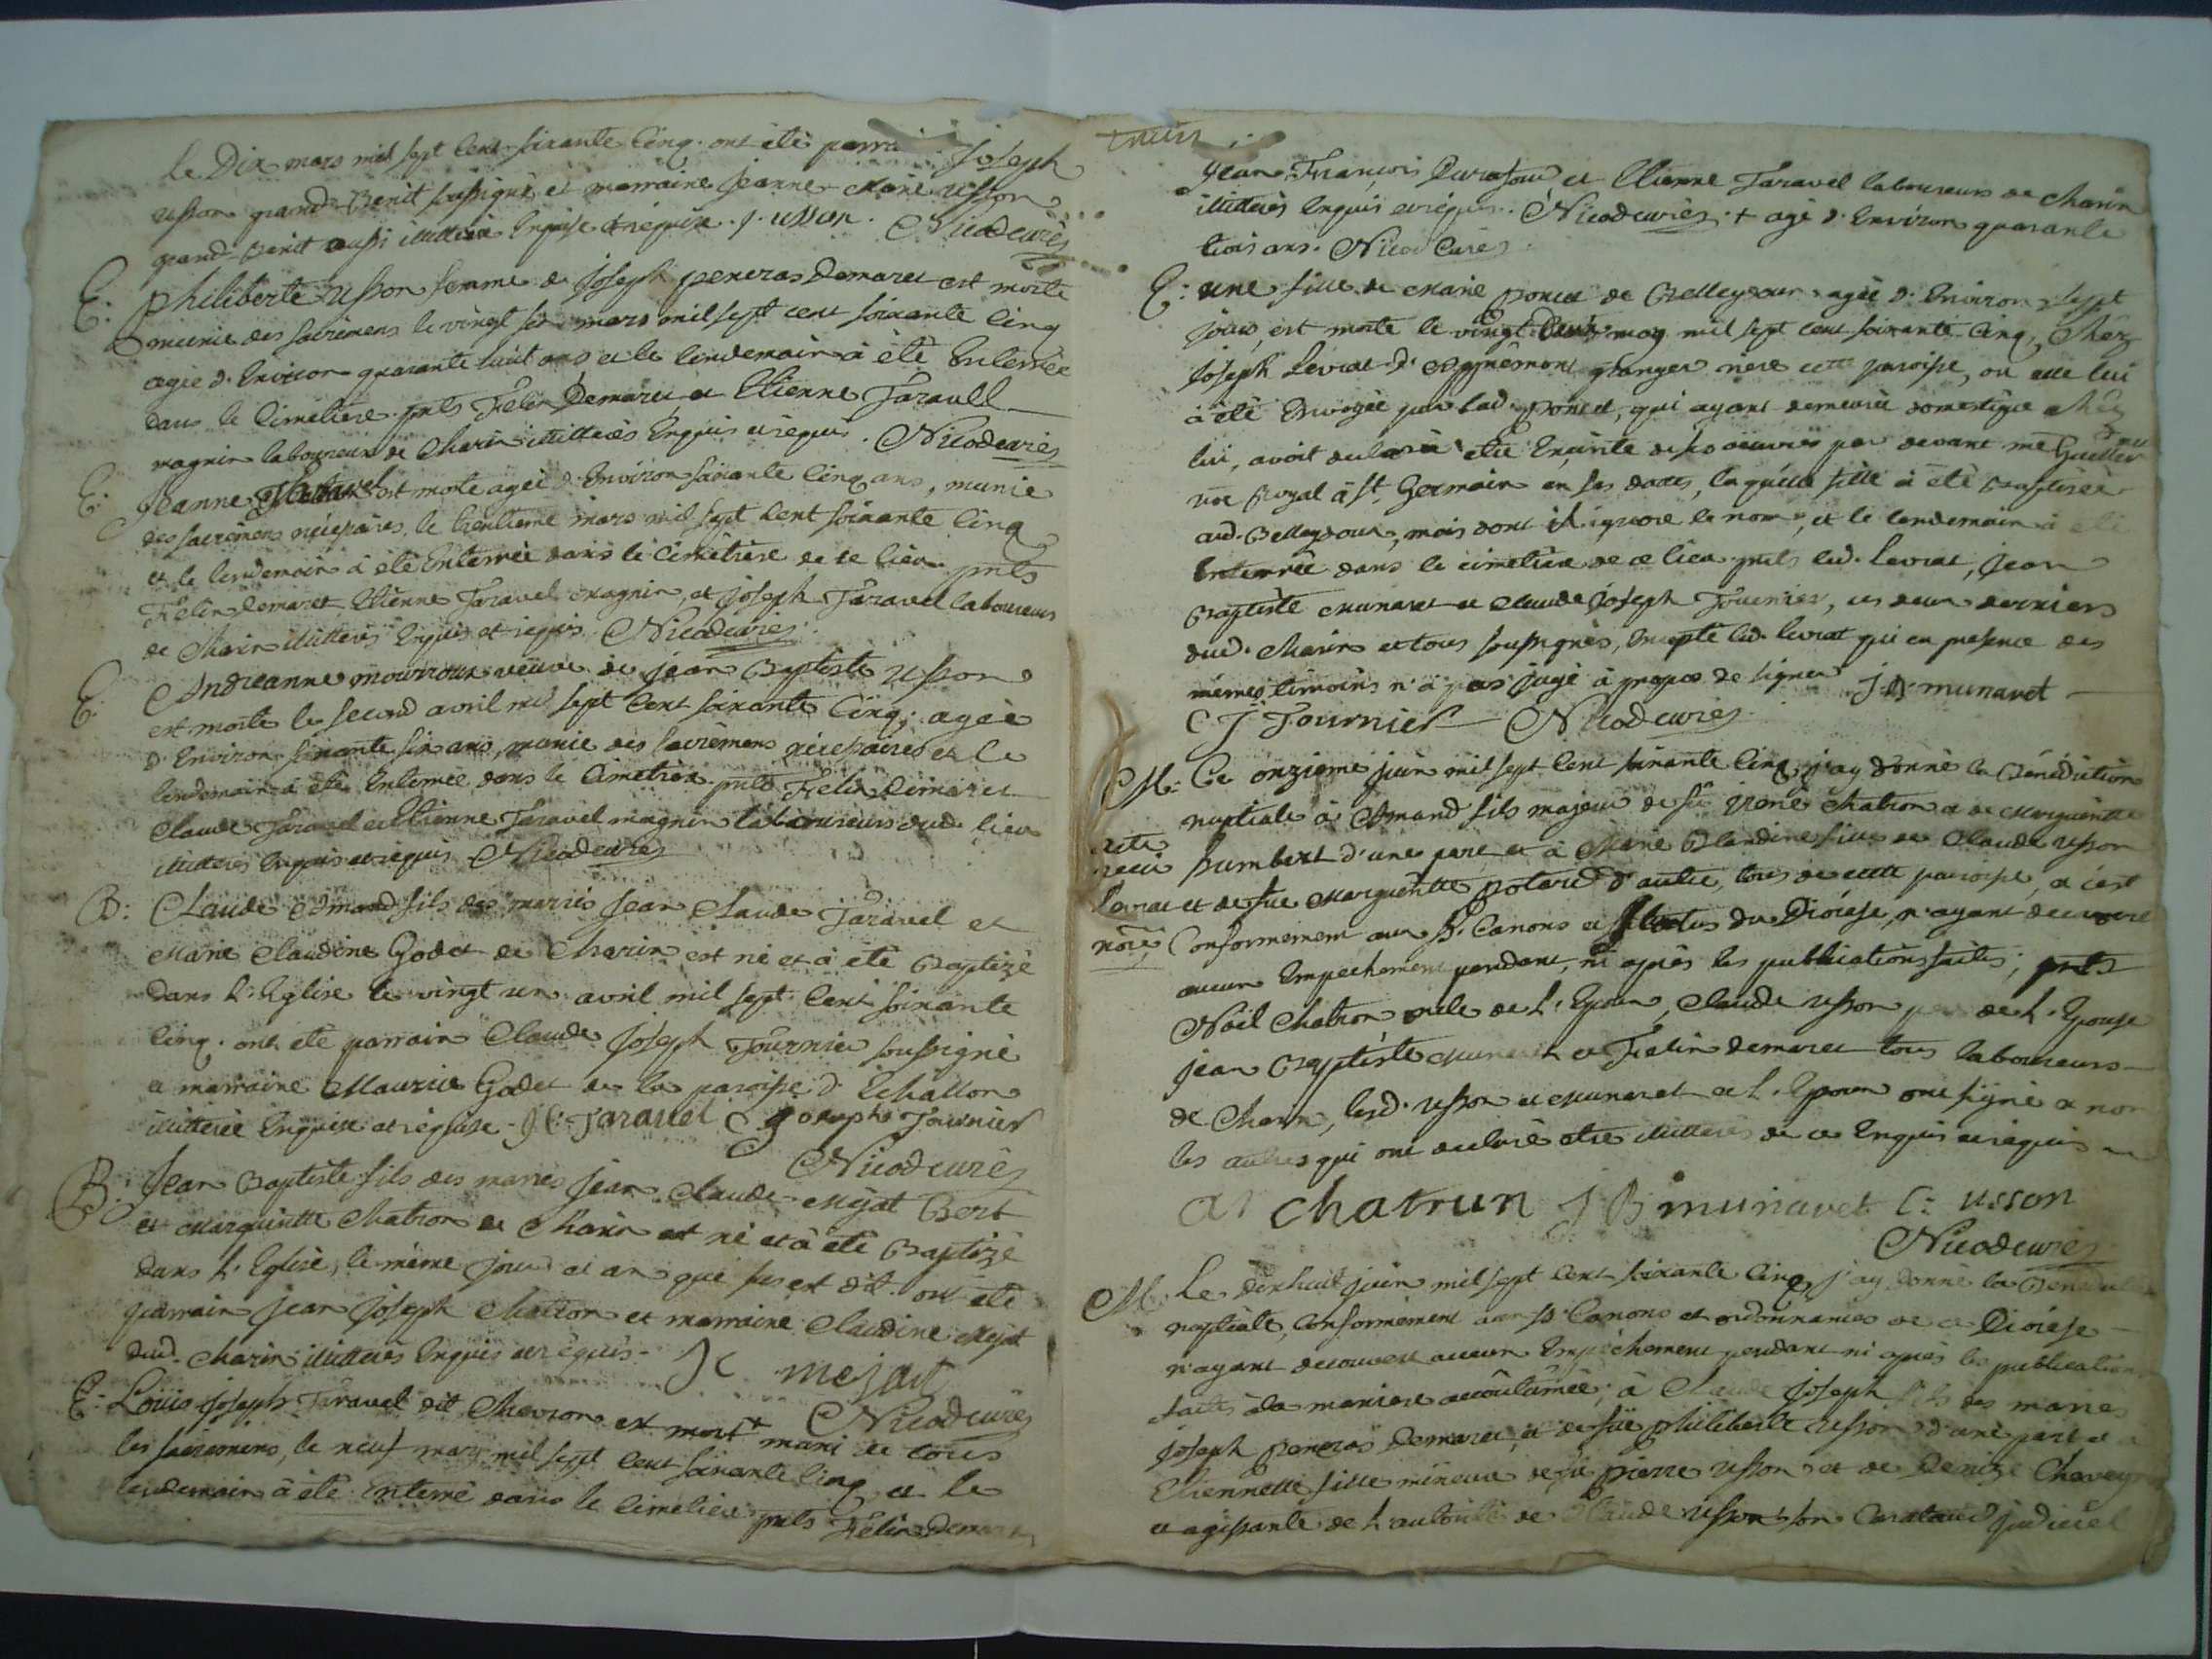 le Dix mars mil sept cent soixante cinq. ont été parrai Joseph
usson grand-Benit soussigné et marraine jeanne-Marie usson
grand-Benit aussi illitérée Enquise et réquise. j. usson. Nicod curé
E: philiberte usson femme de joseph pencras Demaret est morte
munie des sacrémens le vingt six mars mil sept cent soixante cinq
agée d'Environ quarante huit ans et le lendemain à été Enterrée
dans le Cimetiere pnts Felix Demaret et Etienne Taravell
magnin laboureurs de Charix illitterés Enquis et réquis. Nicod curé
E: Jeanne est morte agée d'Environ soixante cinq ans, munie
des sacrémens nécéssaires, le trentieme mars mil sept cent soixante cinq
et le lendemain à été Enterrée dans le Cimétière de ce lieu pnts
Felix Demaret Etienne Taravel magnin, et joseph Taravel laboureurs
de Charix illitterés Enquis et requis Nicod curé
E: Andréanne mourroux veuve de jean Baptiste usson
est morte le second avril mil sept cent soixante cinq; agée
d'Environ soixante six ans, munie des sacrémens nécéssaires et le
lendemain à été Enterrée dans le Cimetière pnts Felix Demaret
Claude Taravel et Etienne Taravel magnin laboureurs dud. lieu
illitterés Enquis et réquis Nicod curé
B: Claude Armand fils des mariés Jean Claude Taravel et
Marie Claudine Godet de Charix est né et à été Baptizé
dans l'Eglise le vingt un avril mil sept cent soixante
cinq. ont été parrain Claude Joseph Tournier soussigné
et marraine Maurice Godet de la paroisse d'Echallon
illitterée Enquise et réquise. J C Taravel C joseph Tournier
Nicod curé
B: Jean Baptiste fils des mariés Jean Claude Mejat Bert
et Margueritte Chatron de Charix est né et à été Baptizé
dans l'Eglise, le même jour et an que sus est dit. ont été
parrain jean joseph Chatron et marraine Claudine Mejat
dud. Charix illitterés Enquis et réquis. J C mejat
Nicod curé
E: Louis joseph Taravel dit Chevron est mort + muni de tous
les sacremens, le neuf may mil sept cent soixante cinq et le
lendemain à été Enterré dans le Cimetiere pnts Felix Demaret
Jean François et Etienne Taravel laboureurs de Charix
illitterés Enquis et réquis. Nicod curé. + agé d'Environ quarante
trois ans. Nicod Curé
E: une fille de Marie poncet de Belleydoux agée d'Environ sept
jours, est morte le vingt deux may mil sept cent soixante cinq, chéz
Joseph Levrat d'Apprémont granger riere cette paroisse, ou elle lui
à été Envoyée par lad. poncet, qui ayant demeuré domestique chéz
lui, avoit declaré être Enceinte de ses oeuvres par devant me
nre Royal à St. Germain en ses dates, laquelle fille à été Baptisée
aud. Belleydoux, mais dont il ignore le nom, et le lendemain à été
Enterrée dans le cimetière de ce lieu pnts led. Levrat, Jean
Baptiste Munaret et Claude Joseph Tournier, ces deux derniers
dud. Charix et tous soussignés, Excepté led. levrat qui en présence des
mêmes témoins n'à pas jugé à propos de signer J B munaret
C J Tournier Nicod curé
M: Ce onzieme juin mil sept cent soixante cinq j'ay donné la Bénédiction
nuptiale à Armand fils majeur de fû Chatron et de Margueritte
humbert d'une part et à Marie Blandine fille de Claude usson
Levrat et de fue Margueritte potard d'autre, tous de cette paroisse, et c'est
Conformement aux St. Canons et Statuts du Diocése, n'ayant decouvert
aucun Empechement pendant, ni après les publications faites; pnts
Noël Chatron oncle de l'Epoux, Claude usson de l'Epouse
jean Baptiste Munaret et Felix demaret tous laboureurs
de Charix, lesd. usson et Munaret et l'Epoux ont signé et non
les autres qui ont declaré être illitterés de ce Enquis et réquis
Chatrun J B munaret C: usson
Nicod curé
M: Le dixhuit juin mil sept cent soixante cinq j'ay donné la
nuptiale, conformément aux St. Canons et ordonnances de ce Diocése
n'ayant decouvert aucun Empêchement pendant ni après les publications
faites à la maniere accoutumée; à Claude Joseph fils des mariés
joseph pencras Demaret, et de fûe philiberte usson d'une part et à
Etiennette fille mineure de fû pierre usson et de Denize
et agissante de l'autorité de Claude usson son Curateur judiciel